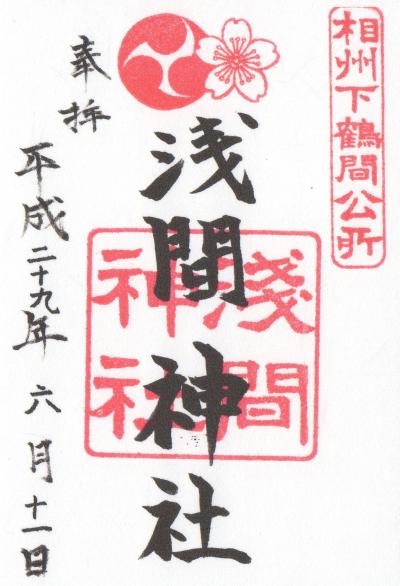 相州下鶴間公所
奉拝
浅間神社
淺間神社
平成二十九年 六月十一日